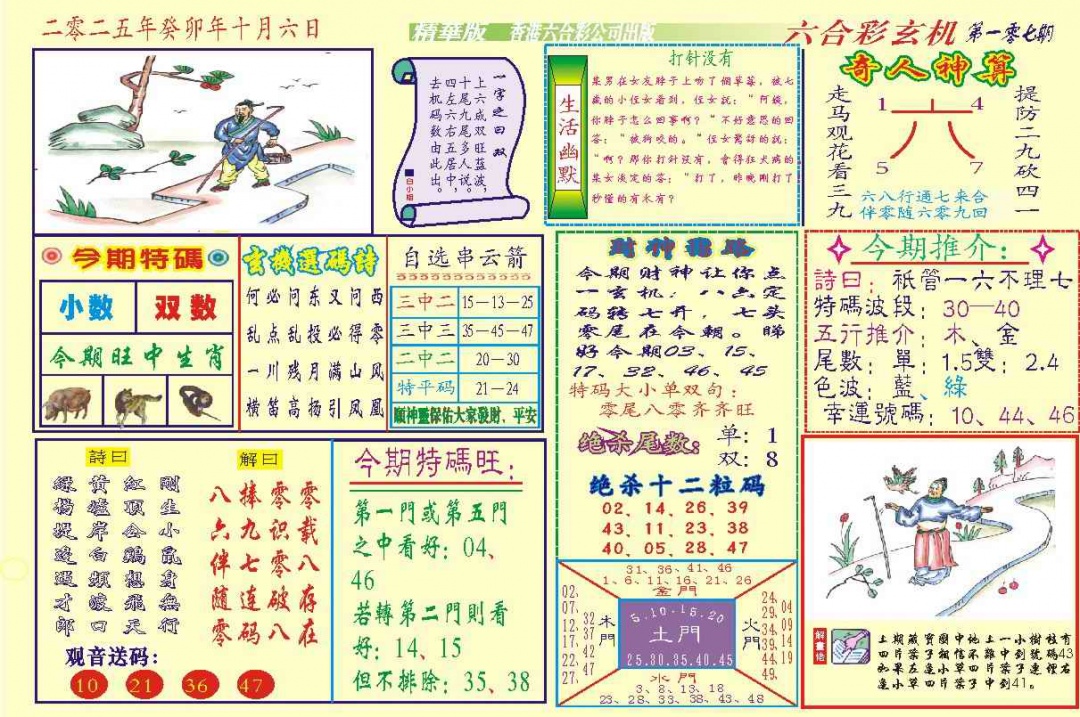 二零二五年癸卯年十月六日
精華版 香港六合彩公司出版
六合彩玄机 第一零七期
一字之曰：双
上六成双旺蓝波，
十尾九尾多人说，
四左六右五居中，
去机码数由此出。
白小姐
生活幽默
打针没有
某男在女友脖子上吻了個草莓，被七
歲的小侄女看到，侄女說：“阿姨，
你脖子怎么回事啊？”不好意思的回
答：“被狗咬的。”侄女驚訝的說：
“啊？那你打針沒有，會得狂犬病的
某女淡定的答：“打了，昨晚剛打了
秒懂的有木有？
奇人神算
走马观花看三九
提防二九砍四一
1 4
六
5 7
六八行通七来合
伴零随六零九回
今期特碼
小数 双数
今期旺中生肖
玄機選碼詩
何必问东又问西
乱点乱投必得零
一川残月满山风
横笛高扬引凤凰
自选串云箭
三中二 15—13—25
三中三 35—45—47
二中二 20—30
特平码 21—24
願神靈保佑大家發財、平安
財神報路
今期财神让你点
一玄机：八六定
码转七开，七头
零尾在今朝。睇
好今期03、15、
17、32、46、45
特码大小单双句：
零尾八零齐齐旺
绝杀尾数： 单：1
双：8
绝杀十二粒码
02、14、26、39
43、11、23、38
40、05、28、47
今期推介：
詩曰：祇管一六不理七
特碼波段：30—40
五行推介：木、金
尾數：單：1.5雙：2.4
色波：藍、綠
幸運號碼：10、44、46
詩曰
剛生小鼠身無行
紅頂公鷄想飛天
黄爐岸白煩渡口
綠楊堤邊遇才郎
解曰
零载八存在
零识零破八
捧九七连码
八六伴随零
观音送码：
10 21 36 47
今期特碼旺：
第一門或第五門
之中看好：04、
46
若轉第二門則看
好：14、15
但不排除：35、38
31、36、41、46
1、6、11、16、21、26
金門
02、07、12、17、22、27、
32 37 42 47
木門
5.10.15.20
土門
25.30.35.40.45
火門
24、29、34、39、44、49、
04 09 14 19
水門
3、8、13、18
23、28、33、38、43、48
解畫信
土期藏寶圖中地上一小樹枝有
四片葉子相信不難中到號碼43
如果左邊小草四片葉子連裡右
邊小草四片葉子中到41。